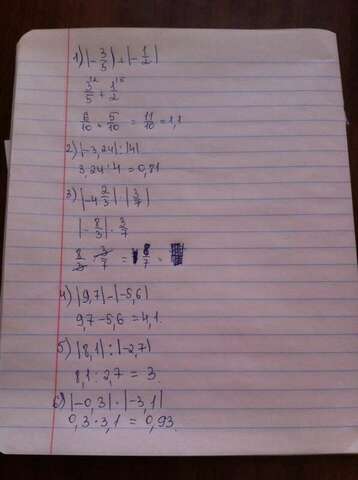 1) |-3/5| + |-1/2|
3/5 + 1/2
6/10 + 5/10 = 11/10 = 1,1
2) |-3,24| : |4|
3,24 : 4 = 0,81
3) |-4 2/3| · |3/7|
|-8/3| · 3/7
8/3 · 3/7 = 8/7 =
4) |9,7| - |-5,6|
9,7 - 5,6 = 4,1.
5) |8,1| : |-2,7|
8,1 : 2,7 = 3.
6) |-0,3| · |-3,1|
0,3 · 3,1 = 0,93.